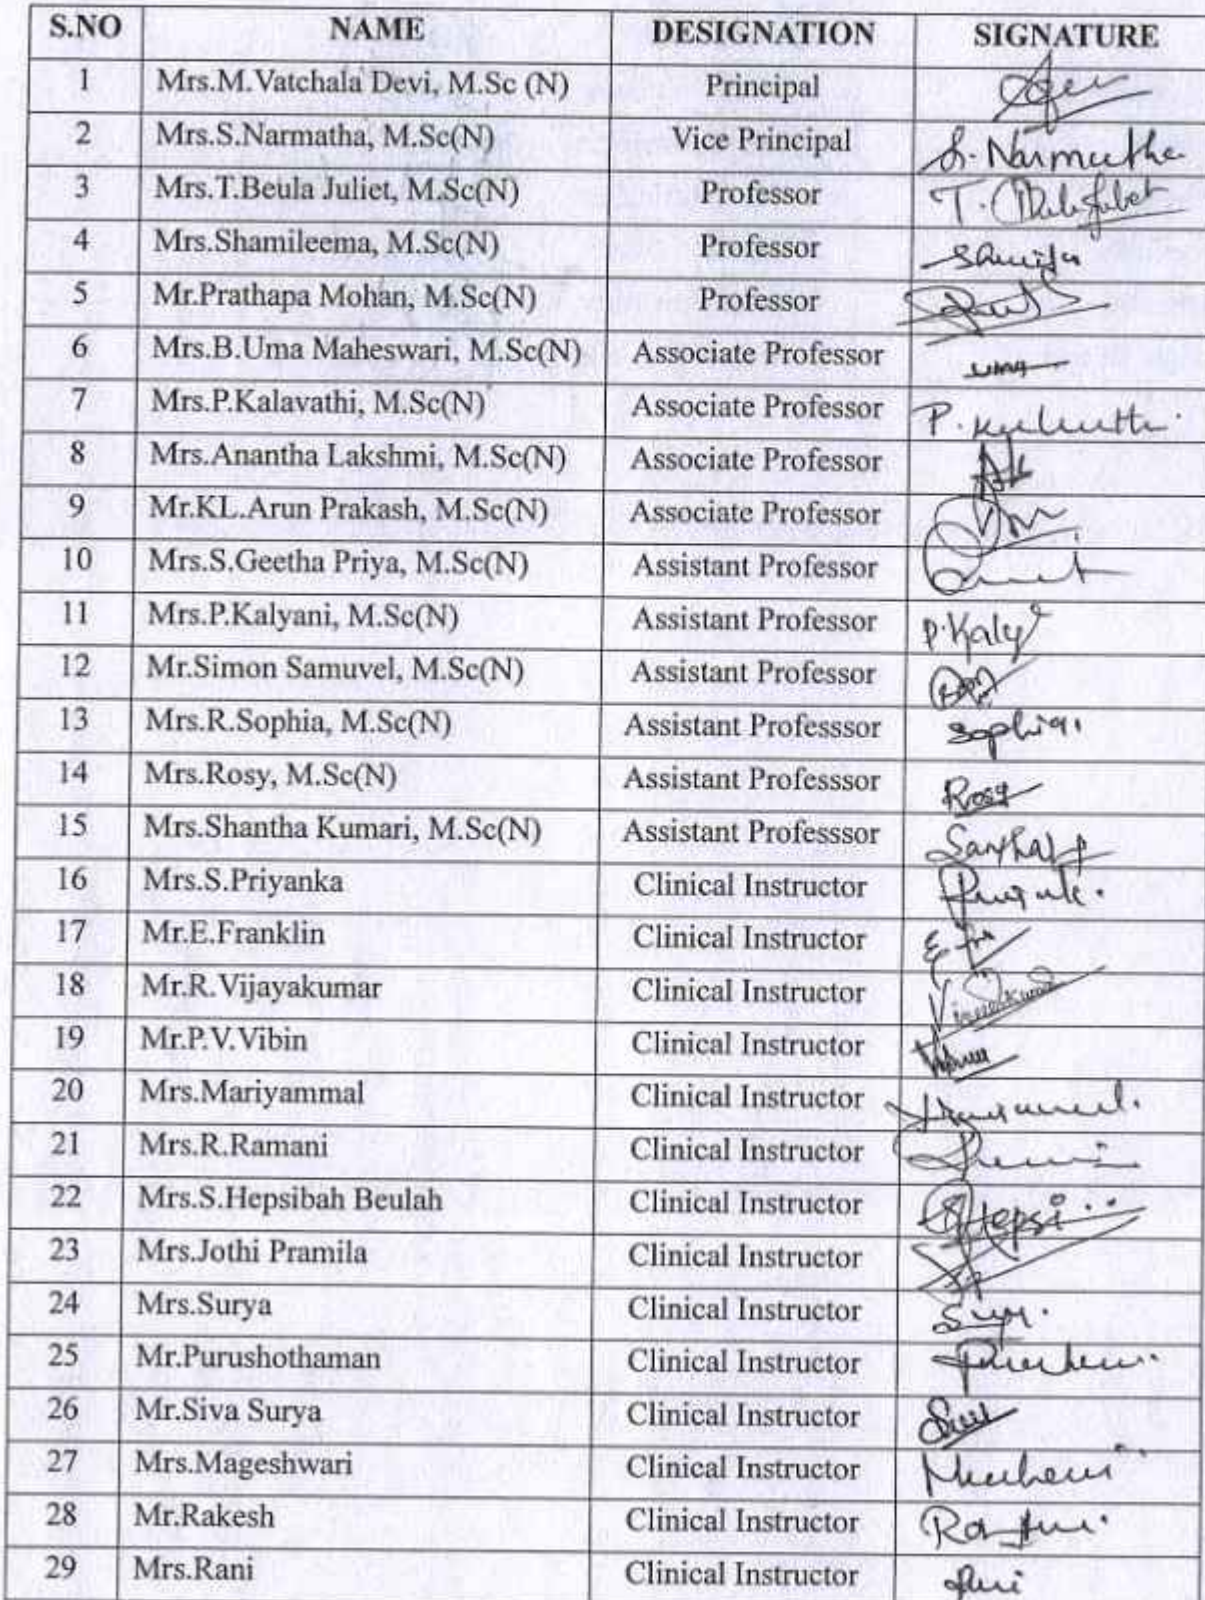 S.NO NAME DESIGNATION SIGNATURE
1 Mrs.M.Vatchala Devi, M.Sc (N) Principal
2 Mrs.S.Narmatha, M.Sc(N) Vice Principal S. Narmatha
3 Mrs.T.Beula Juliet, M.Sc(N) Professor
4 Mrs.Shamileema, M.Sc(N) Professor
5 Mr.Prathapa Mohan, M.Sc(N) Professor
6 Mrs.B.Uma Maheswari, M.Sc(N) Associate Professor UMA
7 Mrs.P.Kalavathi, M.Sc(N) Associate Professor
8 Mrs.Anantha Lakshmi, M.Sc(N) Associate Professor
9 Mr.KL.Arun Prakash, M.Sc(N) Associate Professor
10 Mrs.S.Geetha Priya, M.Sc(N) Assistant Professor
11 Mrs.P.Kalyani, M.Sc(N) Assistant Professor
12 Mr.Simon Samuvel, M.Sc(N) Assistant Professor
13 Mrs.R.Sophia, M.Sc(N) Assistant Professsor Sophia.
14 Mrs.Rosy, M.Sc(N) Assistant Professsor Rosy
15 Mrs.Shantha Kumari, M.Sc(N) Assistant Professsor
16 Mrs.S.Priyanka Clinical Instructor
17 Mr.E.Franklin Clinical Instructor
18 Mr.R.Vijayakumar Clinical Instructor
19 Mr.P.V.Vibin Clinical Instructor
20 Mrs.Mariyammal Clinical Instructor
21 Mrs.R.Ramani Clinical Instructor
22 Mrs.S.Hepsibah Beulah Clinical Instructor
23 Mrs.Jothi Pramila Clinical Instructor
24 Mrs.Surya Clinical Instructor
25 Mr.Purushothaman Clinical Instructor
26 Mr.Siva Surya Clinical Instructor
27 Mrs.Mageshwari Clinical Instructor
28 Mr.Rakesh Clinical Instructor
29 Mrs.Rani Clinical Instructor